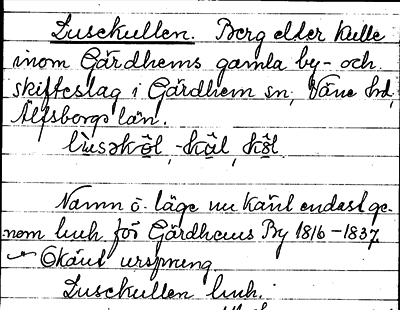 Lusekullen. Berg eller kulle
inom Gärdhems gamla by- och
skifteslag i Gärdhem sn, Väne hd,
Älfsborgs län.
lùsəkö̂l, -kûl, kö̂l.
Namn o. läge nu känt endast ge-
nom lmh. för Gärdhems By 1816-1837
Okänt ursprung
Lusekullen lmh.